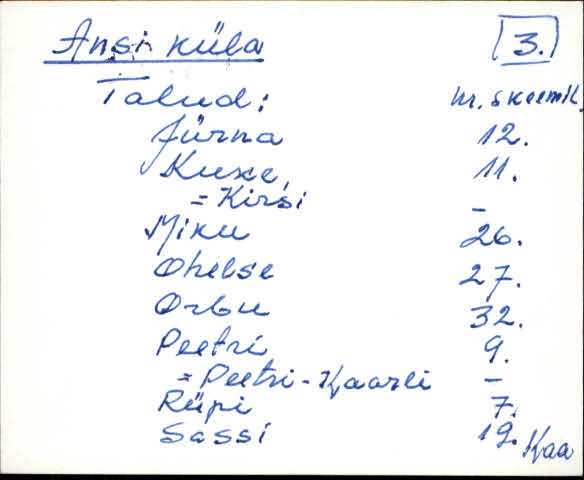 Ansi küla 3.
Talud: nr. skeemil.
Jürna 12.
Kuke, 11.
= Kirsi –
Miku 26.
Ohelse 27.
Orbu 32.
Peetri 9.
= Peetri-Kaarli –
Rüpi 7.
Sassi 19. Kaa